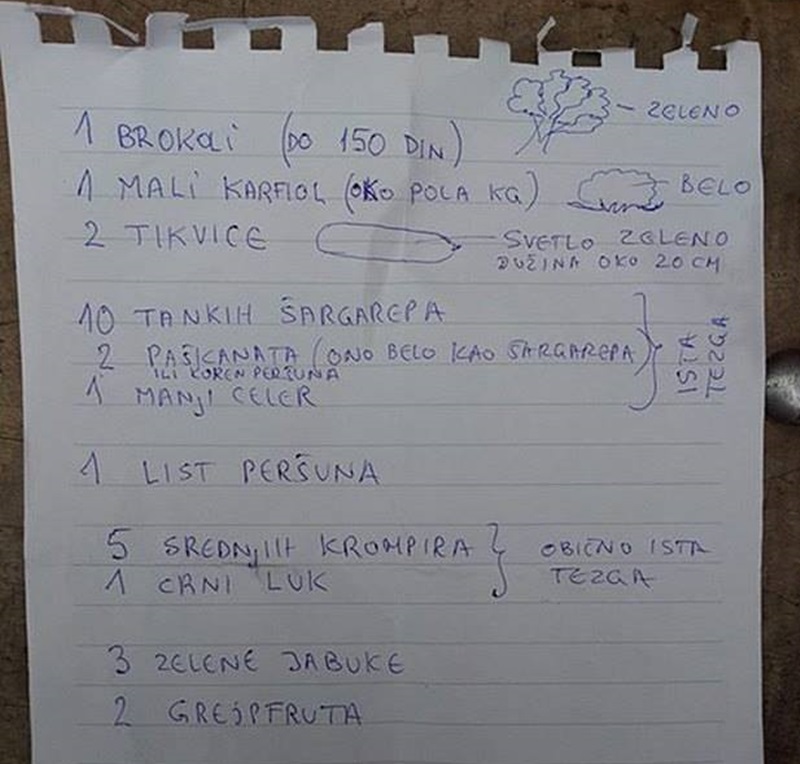 1 BROKOLI (DO 150 DIN) - ZELENO
1 MALI KARFIOL (OKO POLA KG) - BELO
2 TIKVICE - SVETLO ZELENO
DUŽINA OKO 20 CM
10 TANKIH ŠARGAREPA
2 PAŠKANATA (ONO BELO KAO ŠARGAREPA)
ILI KOREN PERŠUNA
1 MANJI CELER
ISTA
TEZGA
1 LIST PERŠUNA
5 SREDNJIH KROMPIRA
1 CRNI LUK
OBIČNO ISTA
TEZGA
3 ZELENE JABUKE
2 GREJPFRUTA